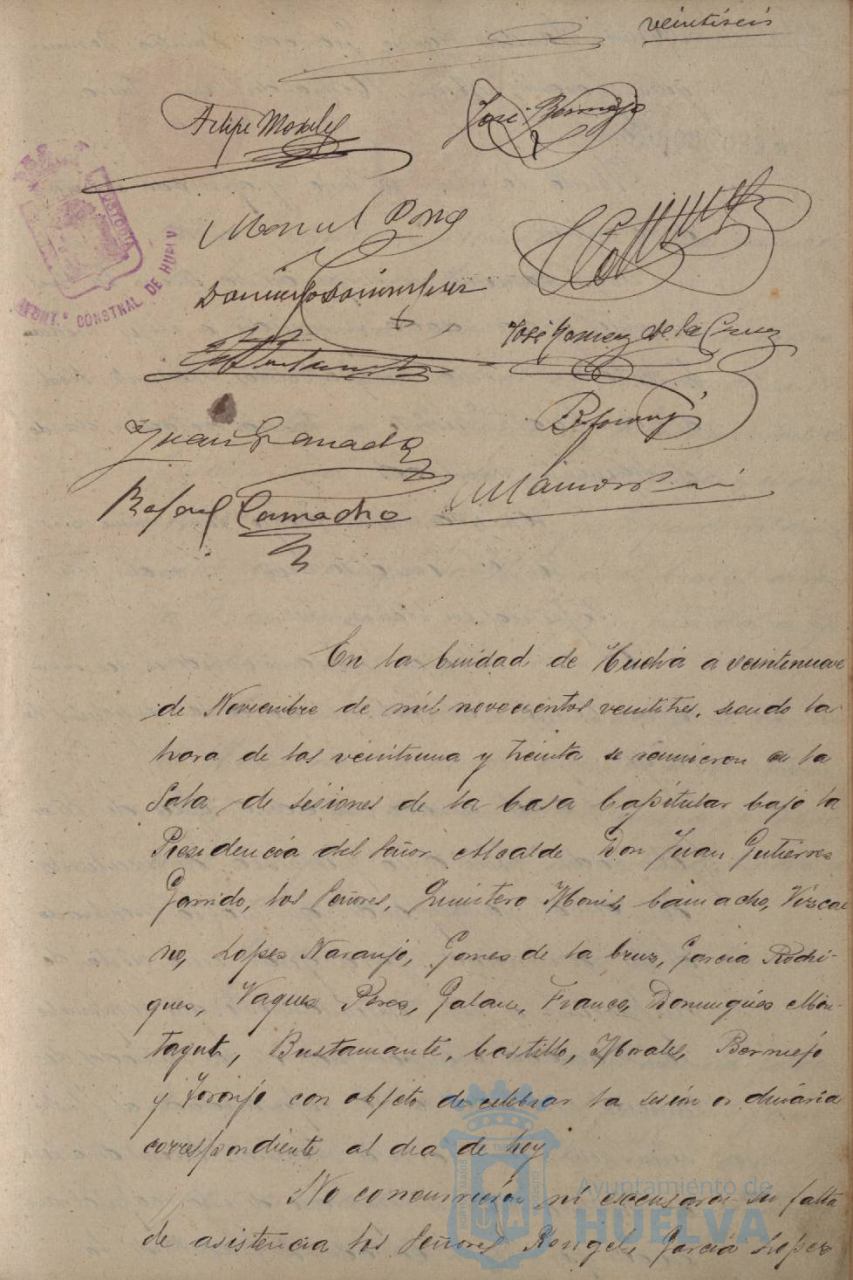 veintiseis
Felipe Morales José Bermejo
Manuel
José Gomez de la Cruz
Juan Granado
Rafael Camacho
AYUNT.º CONSTNAL DE HUELV
En la Ciudad de Huelva a veintinueve
de Noviembre de mil novecientos veintitres, siendo la
hora de las veintiuna y treinta se reunieron en la
Sala de sesiones de la Casa Capitular bajo la
Presidencia del Señor Alcalde Don Juan Gutierres
Garrido, los Señores, Quintero Moris, Camacho, Vizcai
no, Lopes Naranjo, Gomes de la Cruz, Garcia Rodri-
gues, Vaques Peres, Galan, Franco, Domingues, Mon-
tagut, Bustamante, Castillo, Morales, Bermejo
y Toronjo con objeto de celebrar la sesion ordinaria
correspondiente al dia de hoy.
No concurrieron ni excusaron su falta
de asistencia los Señores Garcia Lopez
Ayuntamiento de
HUELVA